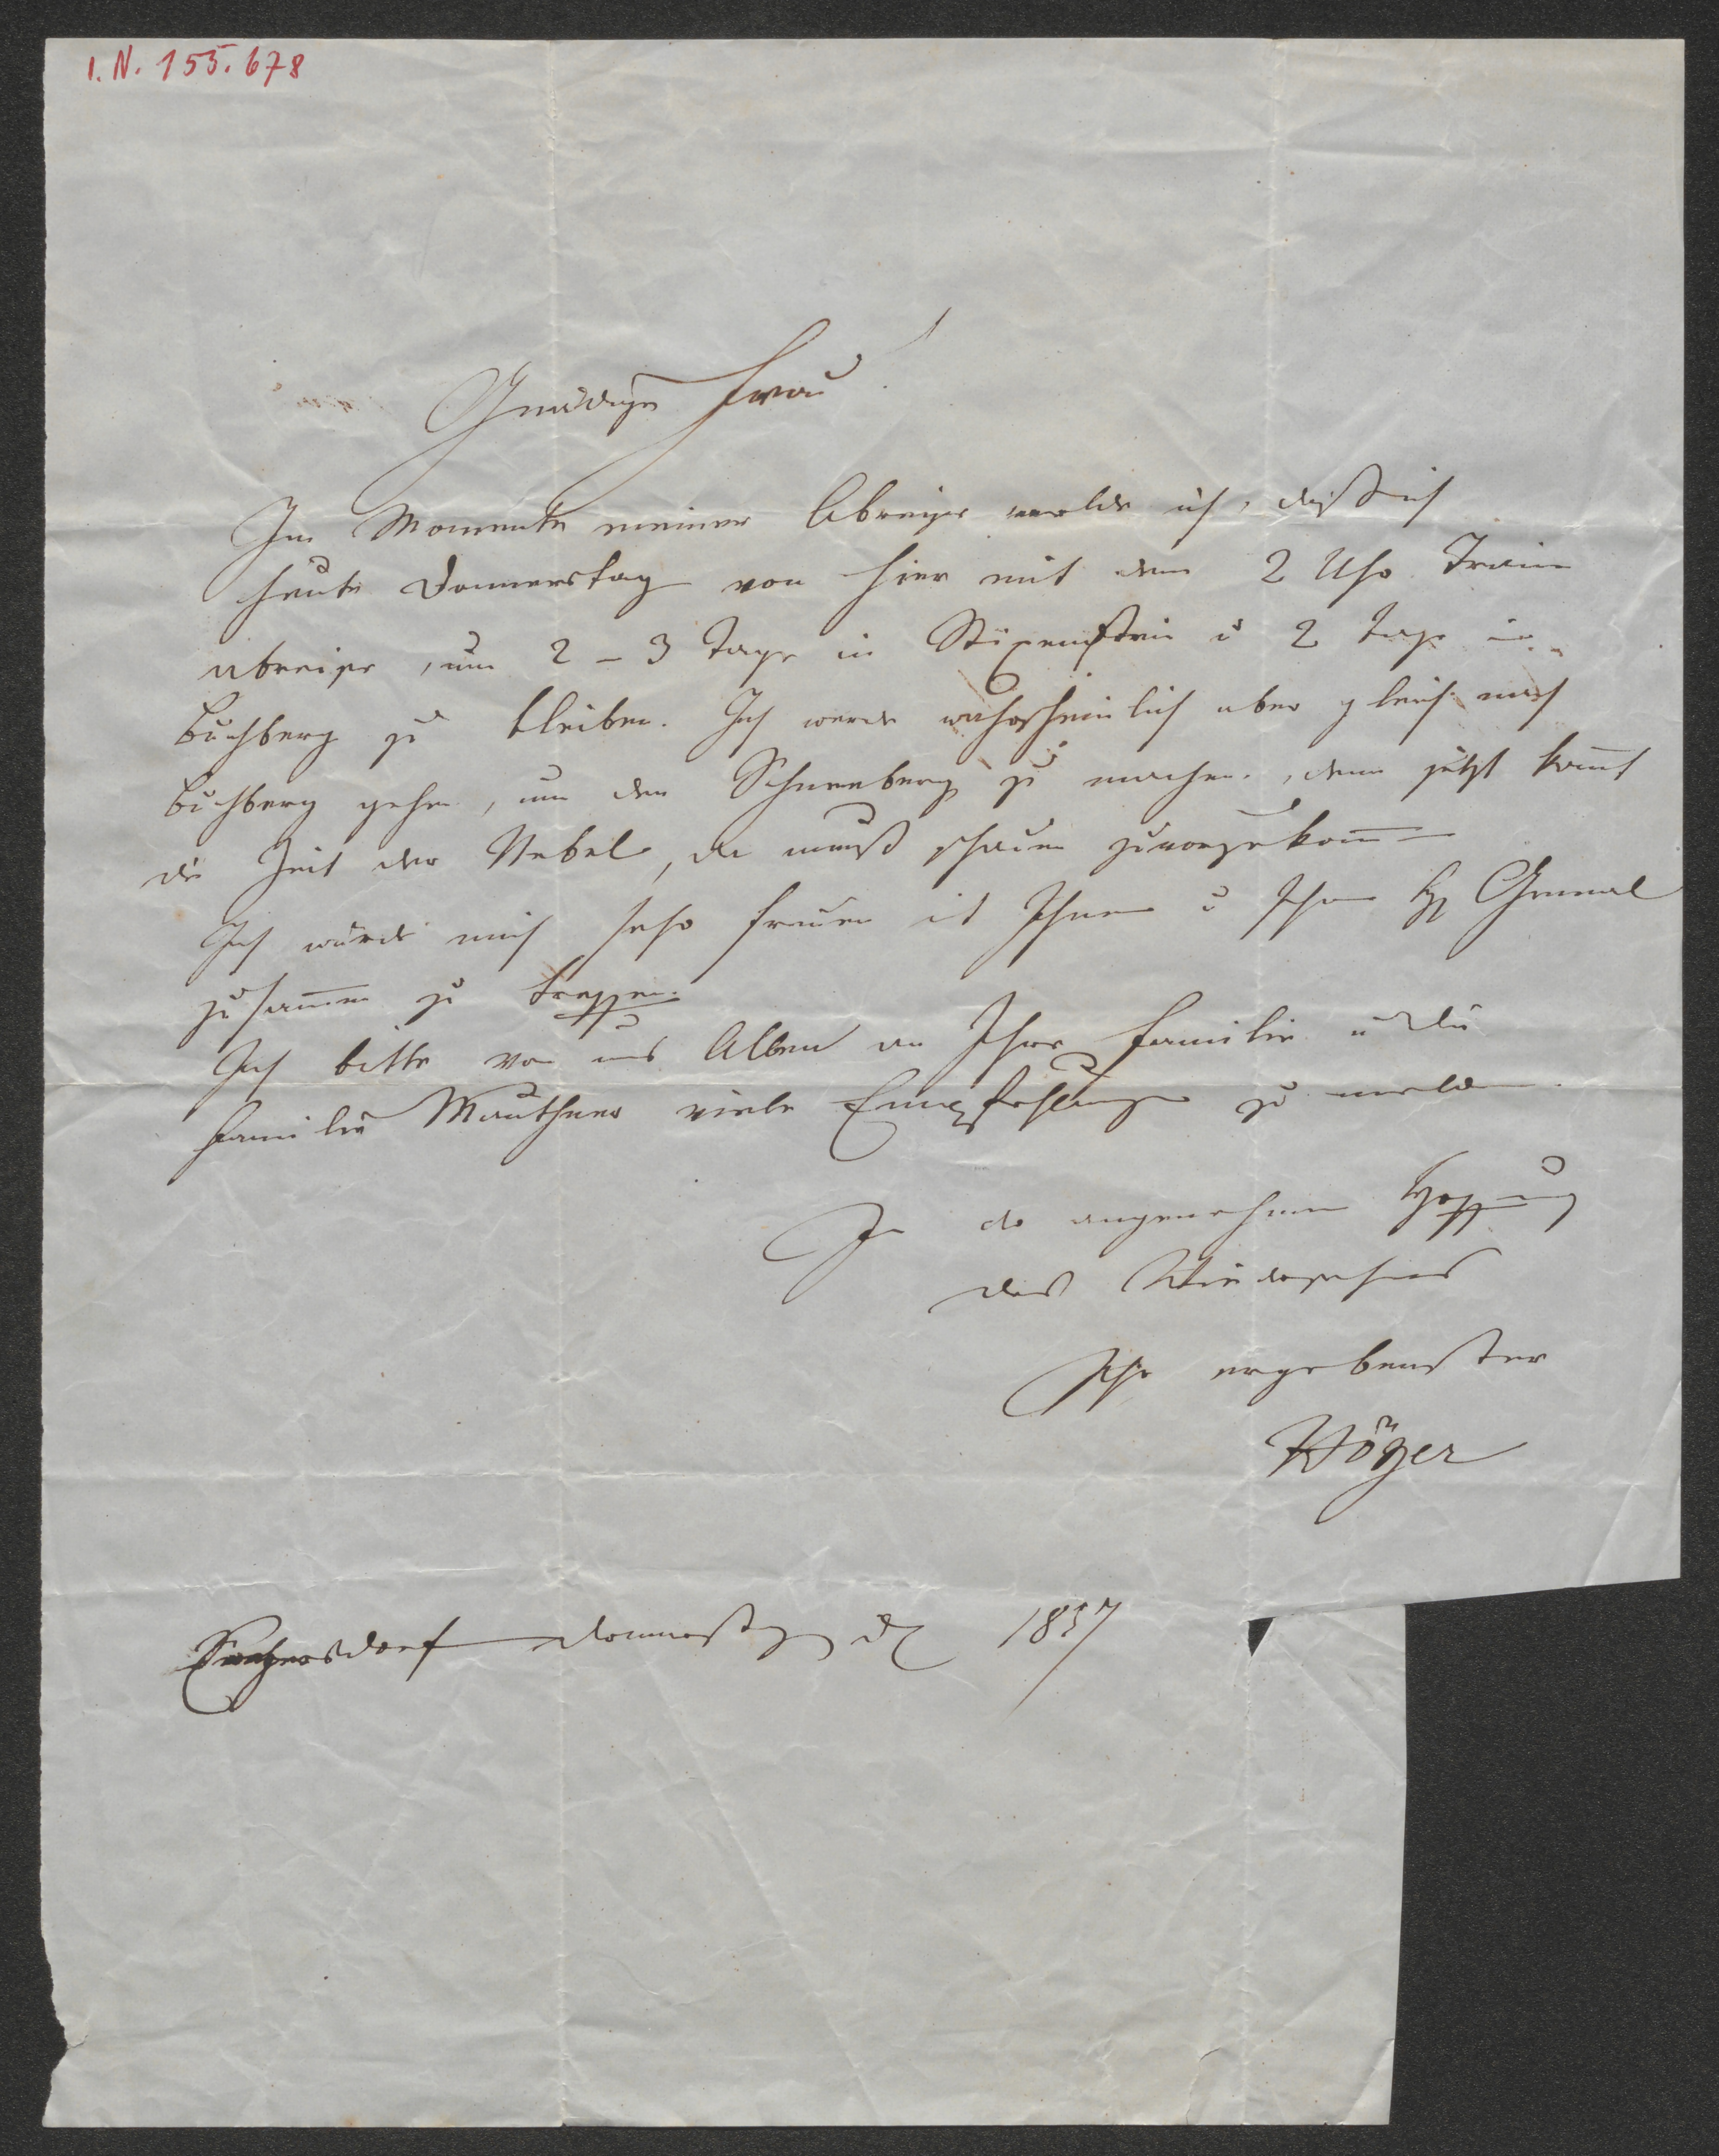 I. N. 155.678
Gnädige Frau!
Im Momente meiner Abreise melde ich, daß ich
heute Donnerstag von hier mit dem 2 Uhr Train
abreise, um 2 – 3 Tage in Stixenstein u 2 Tage in
Buchberg zu bleiben. Ich werde wahrscheinlich aber gleich nach
Buchberg gehen, um den Schneeberg zu machen, denn jetzt kom̅t
die Zeit der Nebel, da muß schauen zuvorzukom̅
Ich würde mich sehr freuen mit Ihnen u Ihrem H General
zusam̅en zu treffen.
Ich bitte von uns Allen an Ihre Familie u die
Familie Mauthner viele Empfehlungen zu melden.
In der angenehmen Hoffnung
des Wiedersehens
Ihr ergebenster
Höger
Donnerstag d 1857